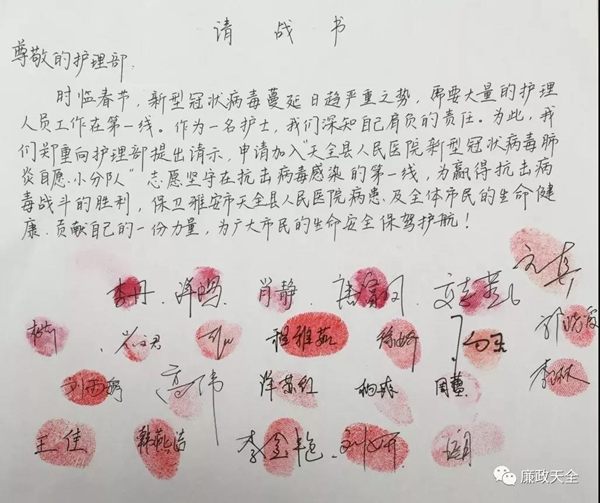 请战书
尊敬的护理部:
时临春节,新型冠状病毒蔓延日趋严重之势,需要大量的护理
人员工作在第一线。作为一名护士,我们深知自己肩负的责任。为此,我
们郑重向护理部提出请示,申请加入“天全县人民医院新型冠状病毒肺
炎自愿小分队”志愿坚守在抗击病毒感染的第一线,为赢得抗击病
毒战斗的胜利,保卫雅安市天全县人民医院病患及全体市民的生命健
康.贡献自己的一份力量,为广大市民的生命安全保驾护航!
李丹 肖静
程雅茹
高伟 周慧 李琳
王佳 李金艳 刘妍
廉政天全